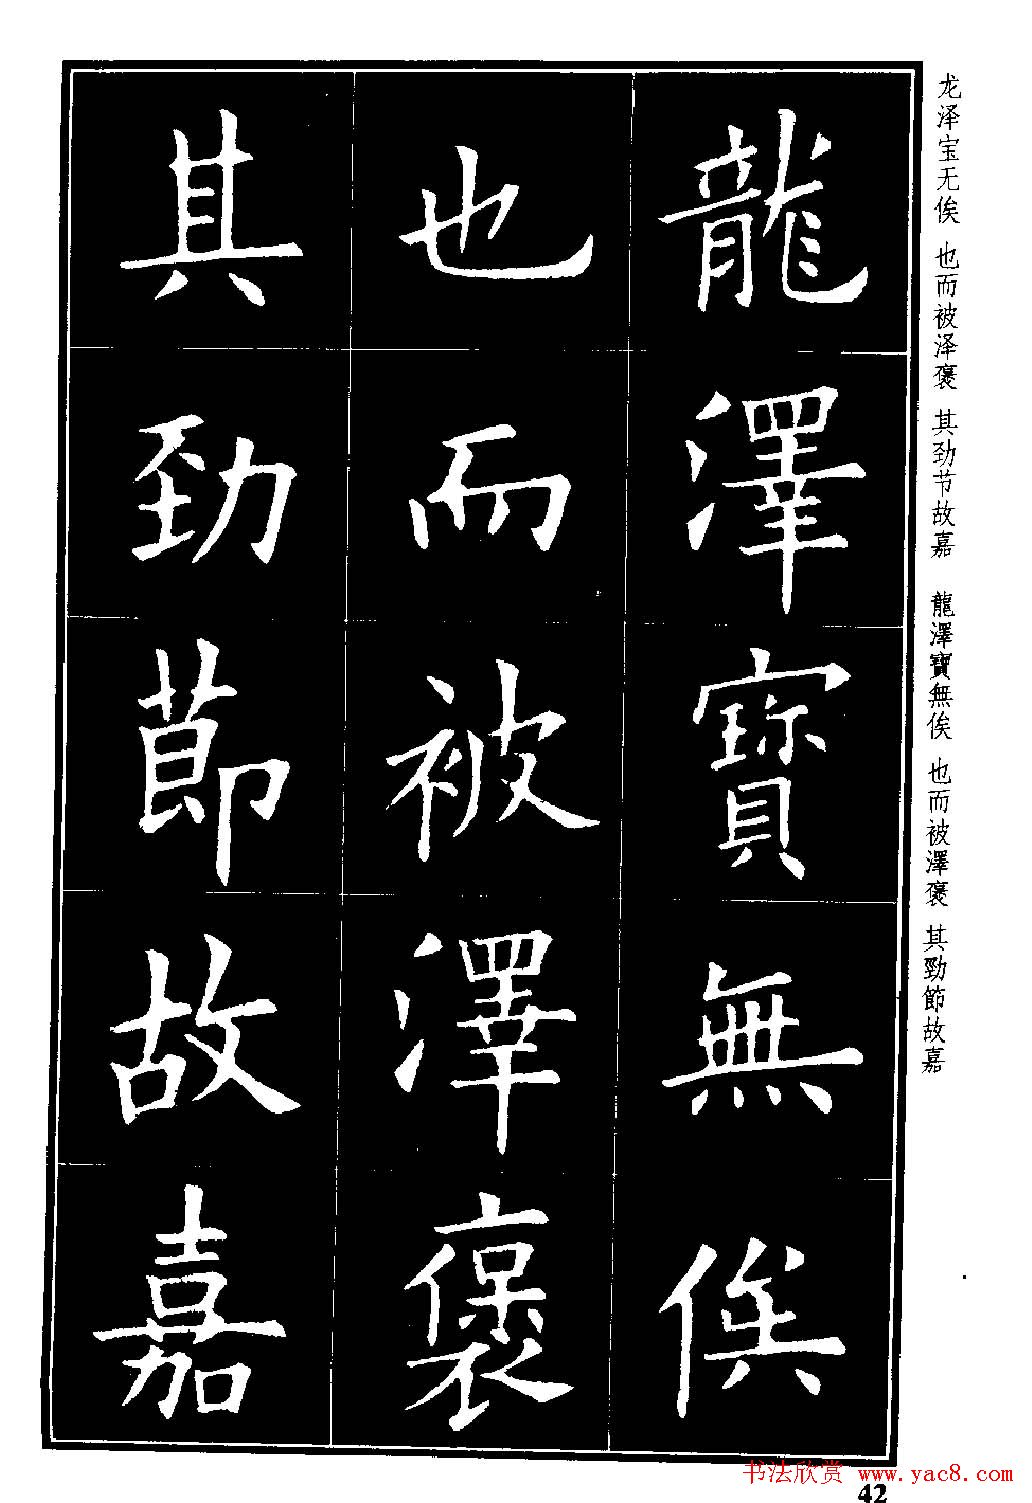 龍澤寶無俟
也而被澤褒
其勁節故嘉
龙泽宝无俟 也而被泽褒 其劲节故嘉 龍澤寶無俟 也而被澤褒 其勁節故嘉
书法欣赏 www.yac8.com
42